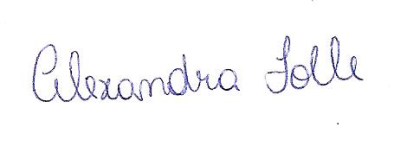 Alexandra Tolle